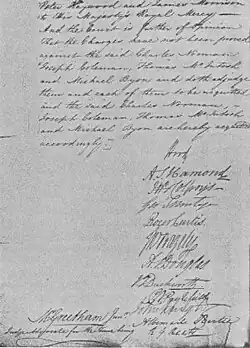 Peter Heywood and James Morrison
to His Majesty's Royal Mercy —
And the Court is further of Opinion
That the Charges had not been proved
against the said Charles Norman
Joseph Coleman, Thomas McIntosh
and Michael Byrn and doth adjudge
them and each of them to be acquitted
and the said Charles Norman, —
Joseph Coleman, Thomas McIntosh
and Michael Byrn are hereby acquitted
accordingly. —
Hood
A S Hamond
Roger Curtis
A S Douglas
J T Duckworth
M Greetham Junr
Judge Advocate for the time being
Albemarle Bertie
R G Keats